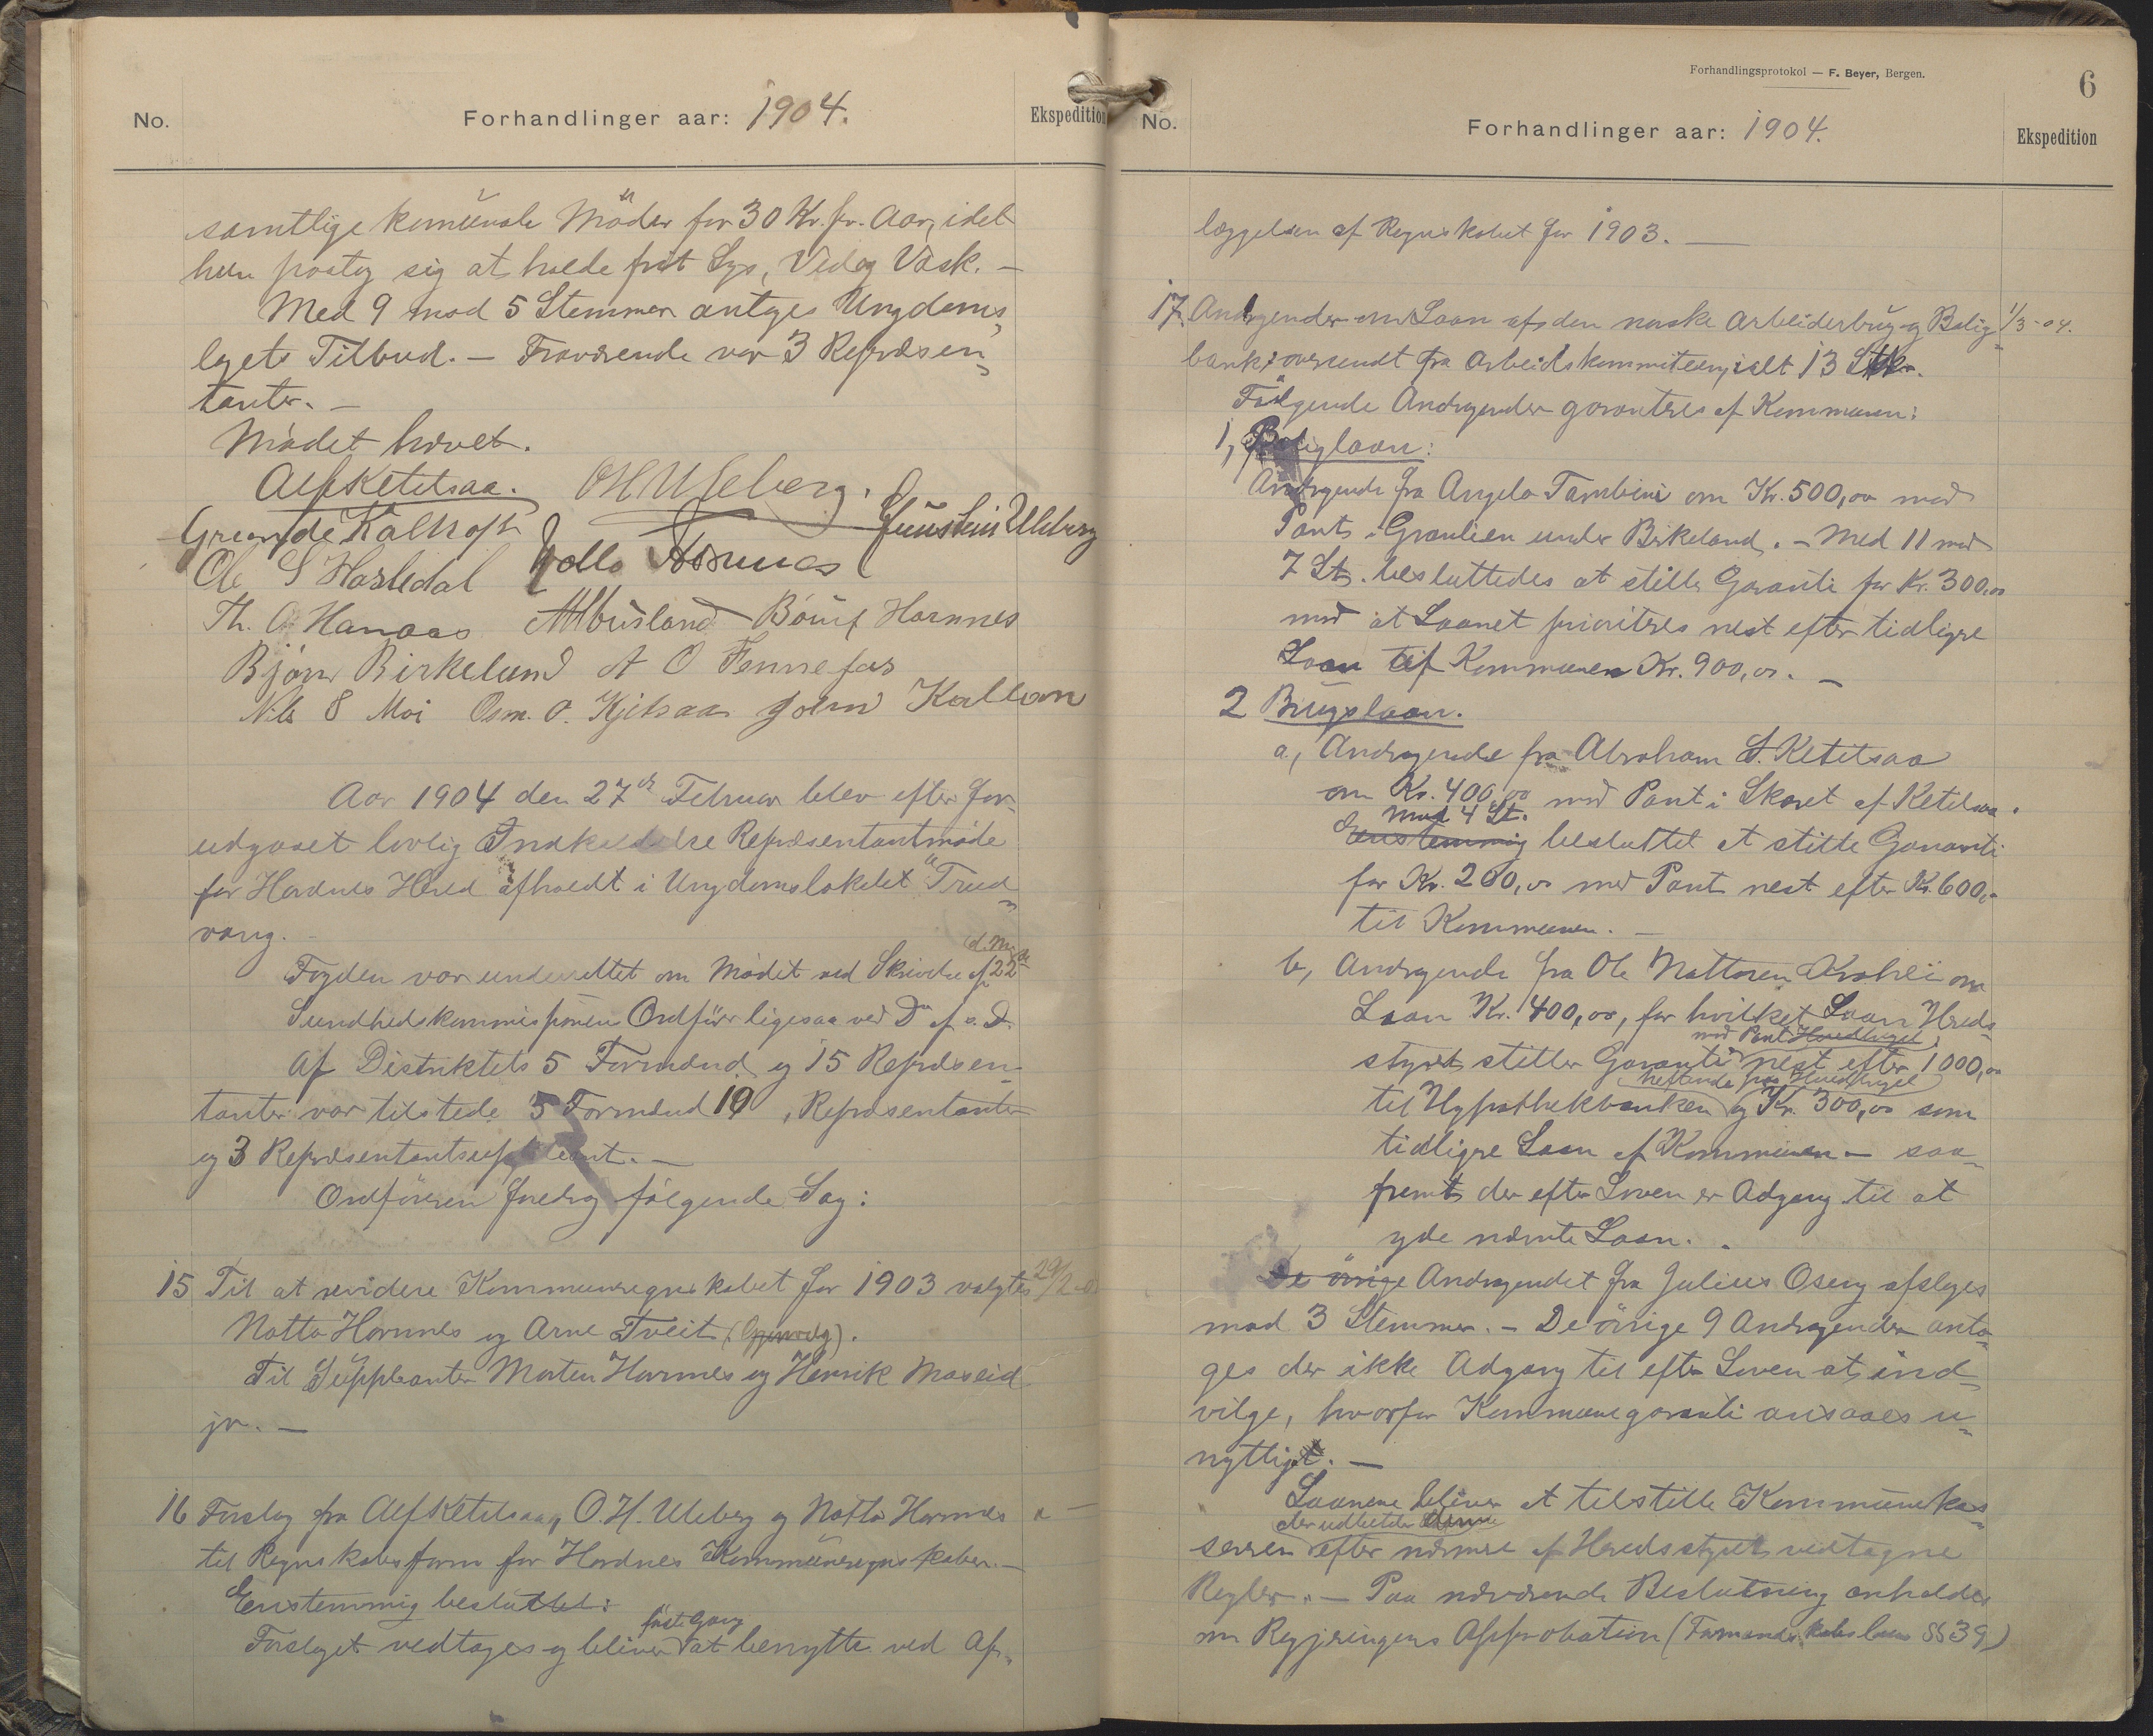 No.
Forhandlinger aar: 1904.
Ekspedition
samtlige kommunale Möder for 30 Kr. pr. Aar, idet
hun paatog sig at holde frit Lys, Ved og Vask. —
Med 9 mod 5 Stemmer antges Ungdoms„
lagets Tilbud. — Fraværende var 3 Repræsen„
tanter. —
Mödet hævet.
Alf Ketelsaa. OH Uleberg.
Grunde Kalhoft Gunstein Uleberg
Notto Hornnes
Ole S Hasledal
Th. O Hanaas A Abusland Hornnes
Björn Birkeland A O Fennefos
Nils S Moi Osm. O. Kjetsaa John Kallan
Aar 1904 den 27de Februar blev efter for-
udgaaet lovlig Indkaldelse Repræsentantmöde
for Hordnes Hered afholdt i Ungdomslokalet "Trud„
vang.
d. M.
Fogden var underrettet om Mödet ved Skrivelse af 22de
Sundhedskommissionens Ordförer ligesaa ved Do af s. D.
Af Distriktets 5 Formænd og 15 Repræsen-
tanter var tilstede 5 Formænd 10 Repræsentanter
og 3 Repræsentantsuppleant. —
Ordföreren foredrog fölgende Sag:
15 Til at revidere Kommuneregnskabet for 1903 valgtes 29/2-04
Notto Hornnes og Arne Tveit (Gjenvalg).
Til Suppleanter Morten Hornnes og Henrik Moseid
jr. —
16 Forslag fra Alf Ketelsaa, O. H. Uleberg og Notto Hornnes
til Regnskabsform for Hordnes Kommuneregnskaber. —
Enstemmig besluttet:
förste Gang
Forslaget vedtages og bliver at benytte ved Af„
Forhandlingsprotokol — F. Beyer, Bergen.
6
No.
Forhandlinger aar: 1904.
Ekspedition
læggelsen af Regnskabet for 1903. —
17. Andragender om Laan af den norske Arbeiderbrug- og Bolig„ 1/3-04.
bank, oversendt fra Arbeidskommiteen, ialt 13 Stkr.
Fölgende Andragender garanteres af Kommunen:
1, Boliglaan:
Andragende fra Angelo Tambini om Kr. 500,00 med
Pant i Granlien under Birkeland. — Med 11 mod
7 St. besluttedes at stille Garanti for Kr. 300,00
mod at Laanet prioriteres nest efter tidligere
Laan af Kommunen Kr. 900,00. —
2 Brugslaan.
a, Andragende fra Abraham S. Ketelsaa
om Kr. 400,00 med Pant i Skaret af Ketelsaa.
mod 4 St.
Enstemmig besluttet at stille Garanti
for Kr. 200,00 med Pant nest efter Kr. 600,-
til Kommunen. —
b, Andragende fra Ole Nattosen om
Laan Kr. 400,00, for hvilket Laan Hereds-
med Pant
styret stiller Garanti nest efter 1000,00
heftende paa
til Hypothekbanken og Kr. 300,00 som
tidligere Laan af Kommunen — saa„
fremt der efter Loven er Adgang til at
yde nævnte Laan.
De övrige Andragendet fra Julius Oseng afslages
mod 3 Stemmer. — De övrige 9 Andragender anta„
ges der ikke Adgang til efter Loven at ind„
vilge, hvorfor Kommunegaranti ansaaes u„
nyttigt. —
Laanene bliver at tilstille Kommunekas„
der udbetaler denne
sereren efter nærmere af Heredsstyret vedtagne
Regler. — Paa nærværende Beslutning anholdes
om Regjeringens Approbation (Formandskabsloven §§ 39)